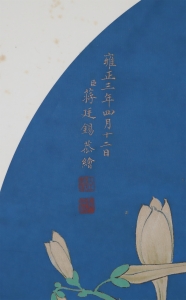 雍正三年四月十二日
臣蔣廷錫恭繪